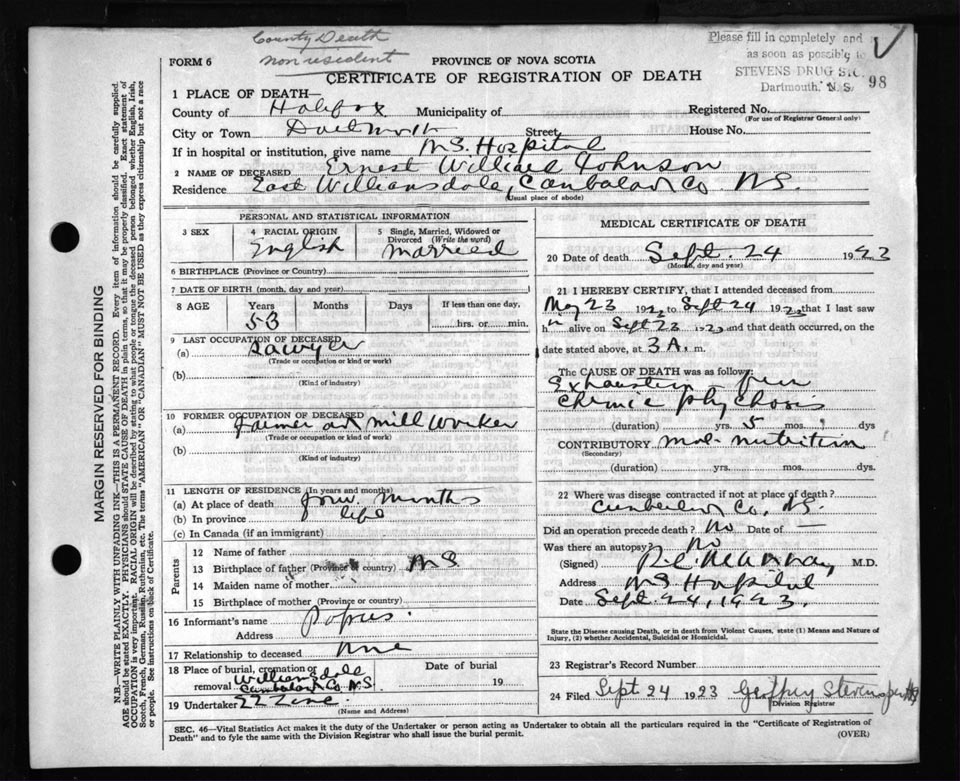 County Death
non resident
Please fill in completely and
as soon as possible to
STEVENS DRUG
Dartmouth, N. S.
98
FORM 6
PROVINCE OF NOVA SCOTIA
CERTIFICATE OF REGISTRATION OF DEATH
1 PLACE OF DEATH—
County of Halifax Municipality of Registered No.
(For use of Registrar General only)
City or Town Dartmouth Street House No.
If in hospital or institution, give name N.S. Hospital
2 NAME OF DECEASED Ernest William Johnson
Residence East Williamsdale, Cumberland Co. N.S.
(Usual place of abode)
PERSONAL AND STATISTICAL INFORMATION
3 SEX
4 RACIAL ORIGIN
English
5 Single, Married, Widowed or
Divorced (Write the word)
Married
6 BIRTHPLACE (Province or Country)
7 DATE OF BIRTH (month, day and year)
8 AGE Years Months Days If less than one day,
53 hrs. or min.
9 LAST OCCUPATION OF DECEASED
(a) Sawyer
(Trade or occupation or kind or work)
(b)
(Kind of industry)
10 FORMER OCCUPATION OF DECEASED
(a) Farmer and mill worker
(Trade or occupation or kind or work)
(b)
(Kind of industry)
11 LENGTH OF RESIDENCE (In years and months)
(a) At place of death four months
(b) In province life
(c) In Canada (if an immigrant)
Parents
12 Name of father
13 Birthplace of father (Province or country) N.S.
14 Maiden name of mother
15 Birthplace of mother (Province or country)
16 Informant's name
Address
17 Relationship to deceased
18 Place of burial, cremation or
removal Williamsdale
Cumberland Co N.S.
Date of burial
19
19 Undertaker
(Name and Address)
MEDICAL CERTIFICATE OF DEATH
20 Date of death Sept. 24 1923
(Month, day and year)
21 I HEREBY CERTIFY, that I attended deceased from
May 23 192 to Sept 24 192 that I last saw
h alive on Sept 23 192 and that death occurred, on the
date stated above, at 3 A. m.
The CAUSE OF DEATH was as follows:
Exhaustion from
Chronic psychosis
(duration) yrs. 5 mos. dys
CONTRIBUTORY Mal-nutrition
(Secondary)
(duration) yrs. mos. dys.
22 Where was disease contracted if not at place of death?
Cumberland Co, N.S.
Did an operation precede death? No Date of —
Was there an autopsy? No
(Signed) M.D.
Address N.S. Hospital
Date Sept. 24, 1923.
State the Disease causing Death, or in death from Violent Causes, state (1) Means and Nature of
Injury, (2) whether Accidental, Suicidal or Homicidal.
23 Registrar's Record Number
24 Filed Sept 24 1923 Geoffrey Stevens
Division Registrar
SEC. 46—Vital Statistics Act makes it the duty of the Undertaker or person acting as Undertaker to obtain all the particulars required in the "Certificate of Registration of
Death" and to fyle the same with the Division Registrar who shall issue the burial permit.
(OVER)
MARGIN RESERVED FOR BINDING
N.B.—WRITE PLAINLY WITH UNFADING INK—THIS IS A PERMANENT RECORD. Every item of information should be carefully supplied.
AGE should be stated EXACTLY. PHYSICIANS should STATE CAUSE OF DEATH in plain terms, so that it may be properly classified. Exact statement of
OCCUPATION is very important. RACIAL ORIGIN will be described by stating to what people or tongue the deceased person belonged whether English, Irish,
Scotch, French, German, Russian, Ruthenian, etc. The terms "AMERICAN" or "CANADIAN" MUST NOT BE USED as they express citizenship but not a race
or people. See instructions on back of Certificate.